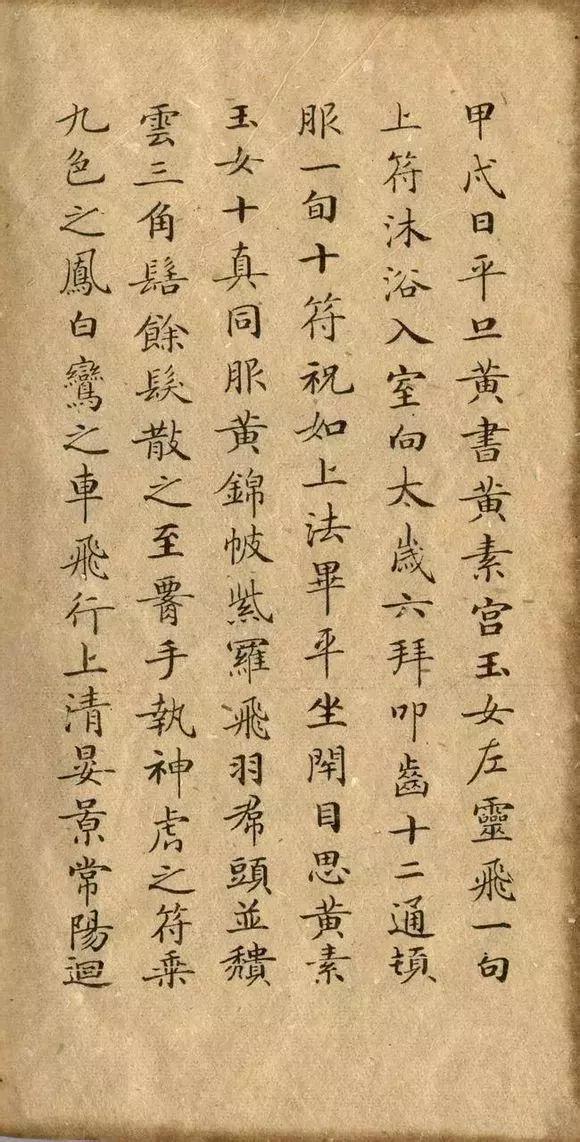 甲戌日平旦黃書黃素宮玉女左靈飛一旬
上符沐浴入室向太歲六拜叩齒十二通頓
服一旬十符祝如上法畢平坐閉目思黃素
玉女十真同服黃錦帔紫羅飛羽帬頭並穨
雲三角髻餘髮散之至𦝫手執神虎之符乗
九色之鳳白鸞之車飛行上清晏景常陽迴